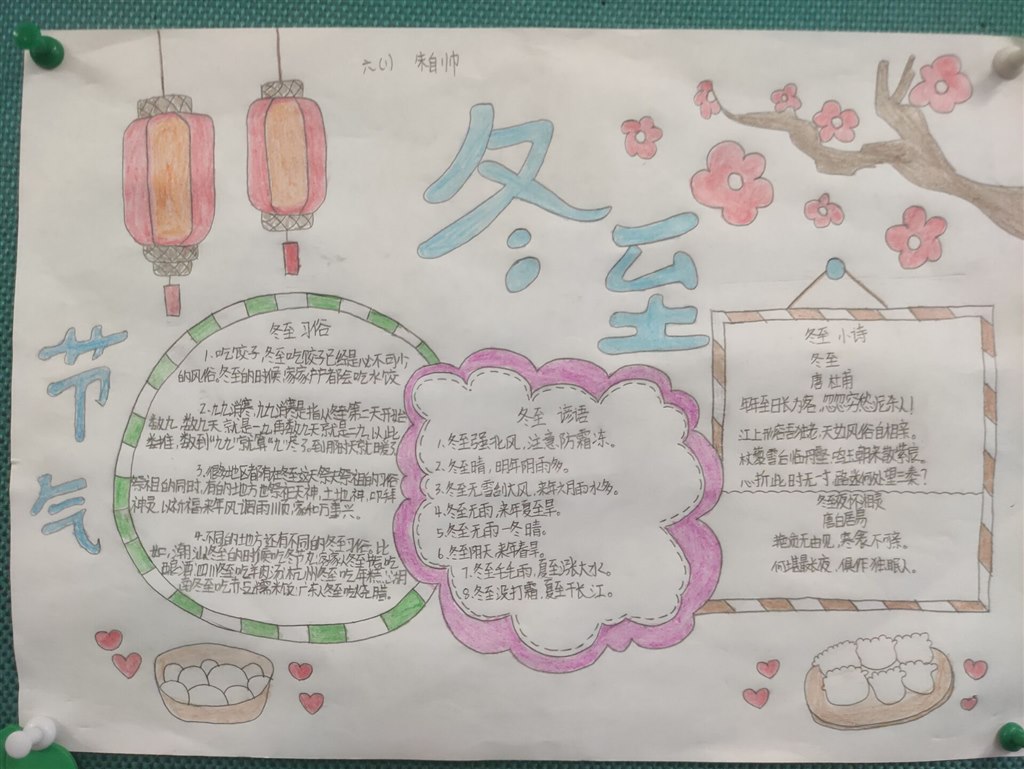 六(1) 朱自帅
冬至
节气
冬至 习俗
1.吃饺子,冬至吃饺子已经是必不可少
的风俗。冬至的时候,家家户户都会吃水饺
2.九九消寒,九九消寒是指从冬至第二天开始
数九,数九天就是一九再数九天就是二九,以此
类推,数到“九九”就算“九”尽了,到那时天就暖了
3.很多地区都有在冬至这天祭天祭祖的习俗
祭祖的同时,有的地方也祭祀天神、土地神、叩拜
神灵,以祈福来年风调雨顺,家和万事兴。
4.不同的地方还有不同的冬至习俗,比
冬至 谚语
1.冬至强北风,注意防霜冻。
2.冬至晴,明年阴雨多。
3.冬至无雪刮大风,来年六月雨水多。
4.冬至无雨,来年夏至旱。
5.冬至无雨一冬晴。
6.冬至阴天,来年春旱。
7.冬至毛毛雨,夏至涨大水。
8.冬至没打霜,夏至干长江。
冬至 小诗
冬至
唐 杜甫
年年至日长为客,忽忽穷愁泥杀人!
江上形容吾独老,天边风俗自相亲。
杖藜雪后临丹壑,鸣玉朝来散紫宸。
心折此时无一寸,路迷何处望三秦?
冬至夜怀湘灵
唐白居易
艳质无由见,寒衾不可亲。
何堪最长夜,俱作独眠人。